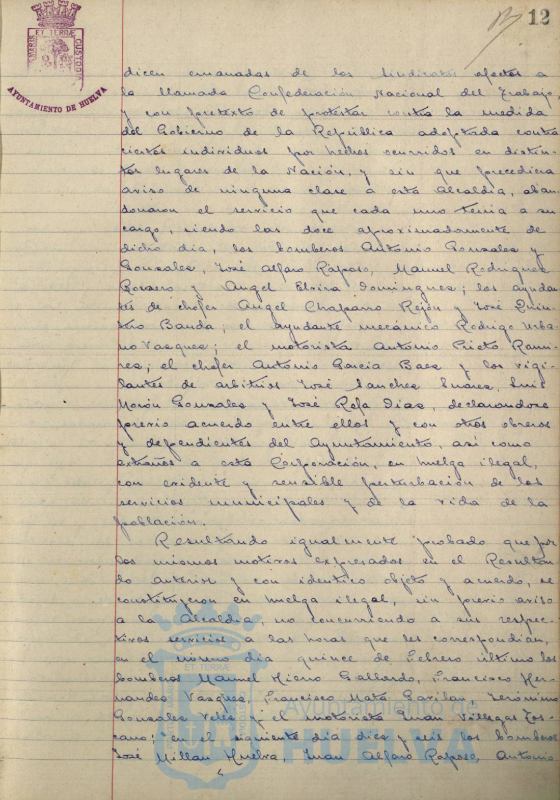 12
PORTUS MARIS ET TERRAE CUSTODIA
AYUNTAMIENTO DE HUELVA
dicen emanadas de los Sindicatos afectos a
la llamada Confederación Nacional del Trabajo,
y con pretexto de protestar contra la medida
del Gobierno de la República adoptada contra
ciertos individuos por hechos ocurridos en distin-
tos lugares de la Nación, y sin que precediera
aviso de ninguna clase a esta Alcaldía, aban-
donaron el servicio que cada uno tenía a su
cargo, siendo las doce aproximadamente de
dicho día, los bomberos Antonio Gonzalez y
Gonzalez, José Alfaro Raposo, Manuel Rodriguez
Romero y Angel Elvira Dominguez; los ayudan-
tes de chofer Angel Chaparro Rejón y José Quin-
tero Banda; el ayudante mecánico Rodrigo Urba-
no Vazquez; el motorista Antonio Prieto Rami-
rez; el chofer Antonio Garcia Baez y los vigi-
lantes de arbitrios José Sanchez Suarez, Luis
Morón Gonzalez y José Rofa Diaz, declarandose
previo acuerdo entre ellos y con otros obreros
y dependientes del Ayuntamiento, así como
extraños a esta Corporación, en huelga ilegal,
con evidente y sensible perturbación de los
servicios municipales y de la vida de la
población.
Resultando igualmente probado que por
los mismos motivos expresados en el Resultan-
do anterior y con identico objeto y acuerdo, se
constituyeron en huelga ilegal, sin previo aviso
a la Alcaldía, no concurriendo a sus respec-
tivos servicios a las horas que les correspondian,
en el mismo día quince de Febrero último los
bomberos Manuel Hierro Gallardo, Francisco Her-
nandez Vazquez, Francisco Mata Gavilan, Jerónimo
Gonzalez Velez y el motorista Juan Villegas Tos-
cano; en el siguiente día diez y seis los bomberos
José Millan Huelva, Juan Alfaro Raposo, Antonio
Ayuntamiento de
HUELVA